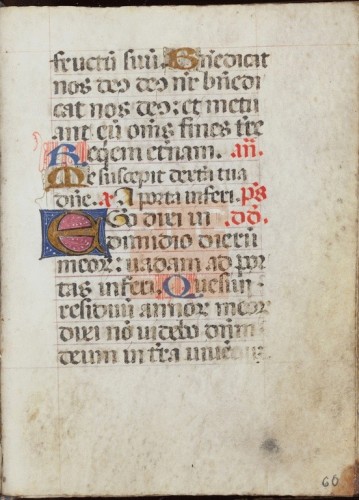 fructū suū. Benedicat
nos deo deo nr̄ bn̄edi
cat nos deo: et metu
ant eū om̄s fines tr̄e
Reqem etnam. an̄.
Me suscepit dextra tua
dn̄e. A porta inferi. ps
EGo dixi in dd.
dimidio dierū
meor: vadam ad por
tas inferi. Quesiui
residuū annor meor
dixi nō videbo dnm̄
deum in tr̄a
60